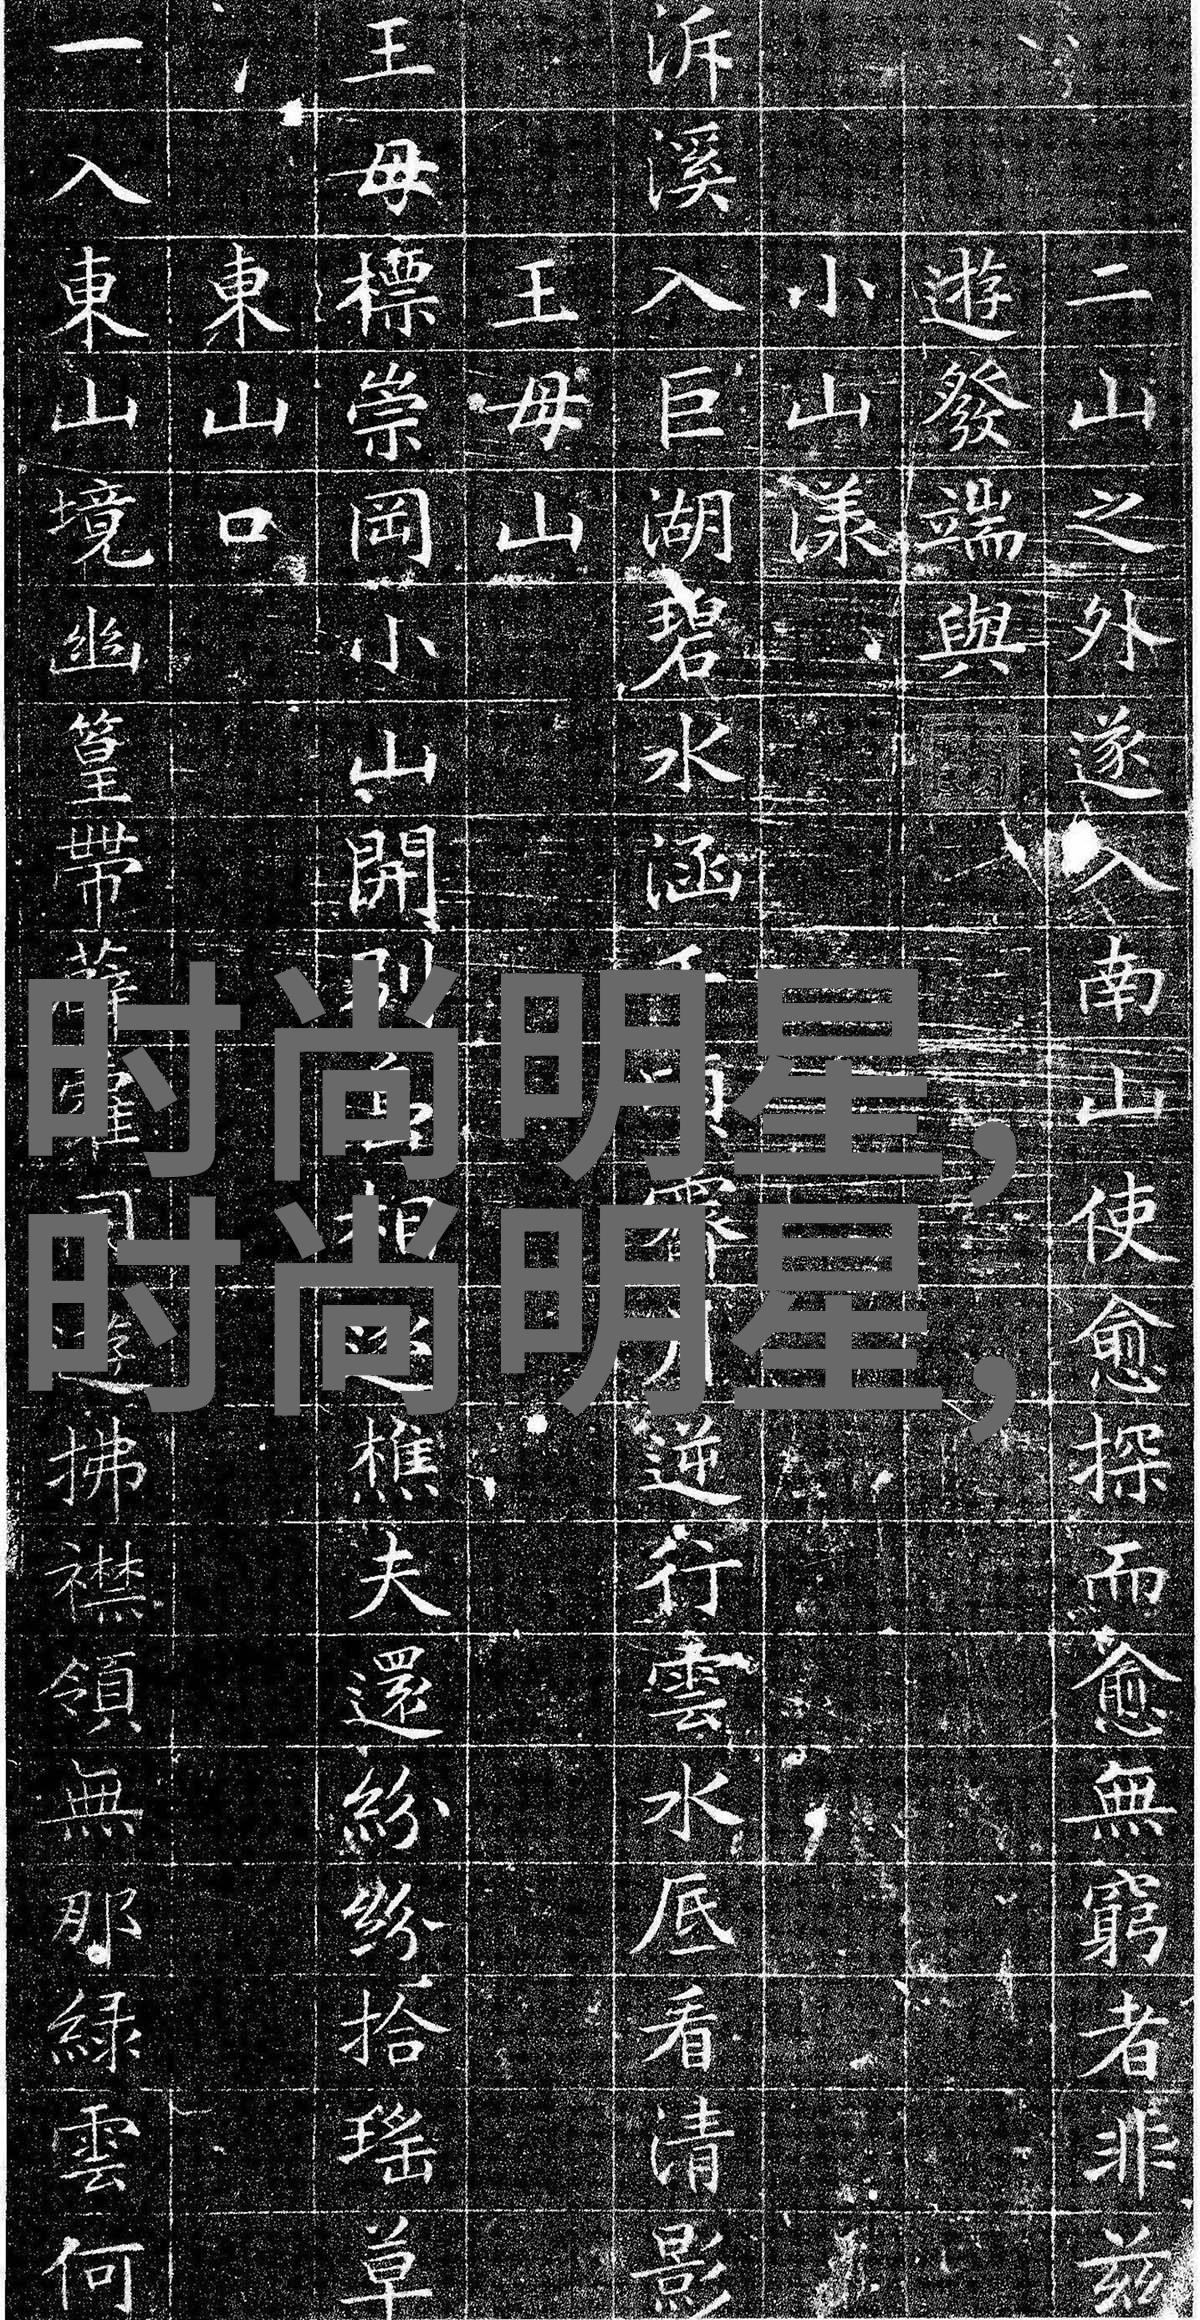 二山之外遂入南山使愈探而愈無窮者非茲
遊發端與
小山漾
泝溪入巨湖碧水涵千頃霽月逆行雲水底看清影
王母山
王母標崇岡小山開別島相逐樵夫還紛紛拾瑤草
東山口
一入東山境幽篁帶薜蘿同遊拂襟領無那綠雲何
时尚明星，
时尚明星，